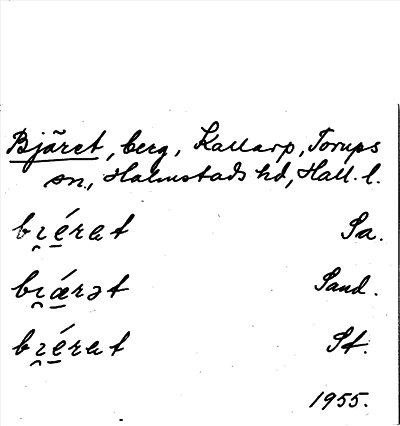 Bjäret, berg, Kallarp, Torups
sn., Halmstads hd, Hall. l.
bı̯é̠rat Sa.
bı̯ǽ̠rət Sand.
bı̯é̠rat St.
1955.